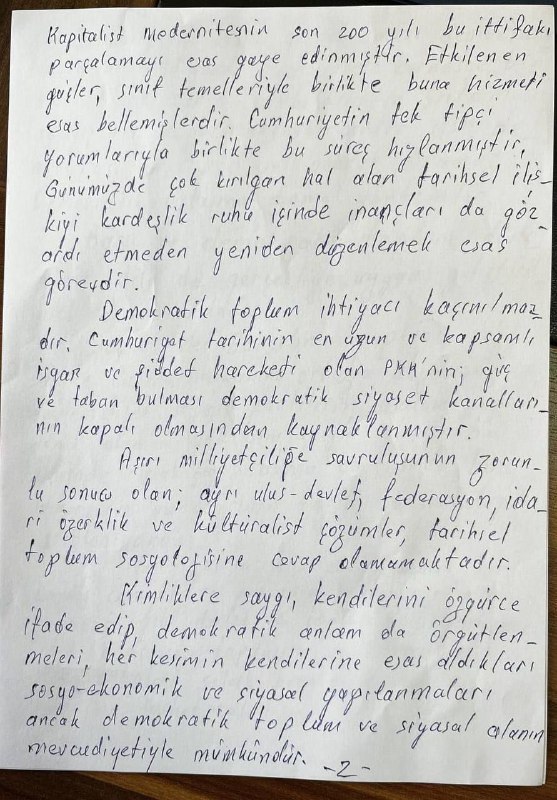 Kapitalist Modernitenin son 200 yılı bu ittifakı
parçalamayı esas gaye edinmiştir. Etkilenen
güçler, sınıf temelleriyle birlikte buna hizmeti
esas bellemişlerdir. Cumhuriyetin tek tipçi
yorumlarıyla birlikte bu süreç hızlanmıştır.
Günümüzde çok kırılgan hal alan tarihsel iliş-
kiyi kardeşlik ruhu içinde inançları da göz
ardı etmeden yeniden düzenlemek esas
görevdir.
Demokratik toplum ihtiyacı kaçınılmaz-
dır. Cumhuriyet tarihinin en uzun ve kapsamlı
isyan ve şiddet hareketi olan PKK'nin; güç
ve taban bulması demokratik siyaset kanalları-
nın kapalı olmasından kaynaklanmıştır.
Aşırı milliyetçiliğe savruluşunun zorun-
lu sonucu olan; ayrı ulus-devlet, federasyon, ida-
ri özerklik ve kültüralist çözümler, tarihsel
toplum sosyolojisine cevap olamamaktadır.
Kimliklere saygı, kendilerini özgürce
ifade edip, demokratik anlam da örgütlen-
meleri, her kesimin kendilerine esas aldıkları
sosyo-ekonomik ve siyasal yapılanmaları
ancak demokratik toplum ve siyasal alanın
mevcudiyetiyle mümkündür.
-2-